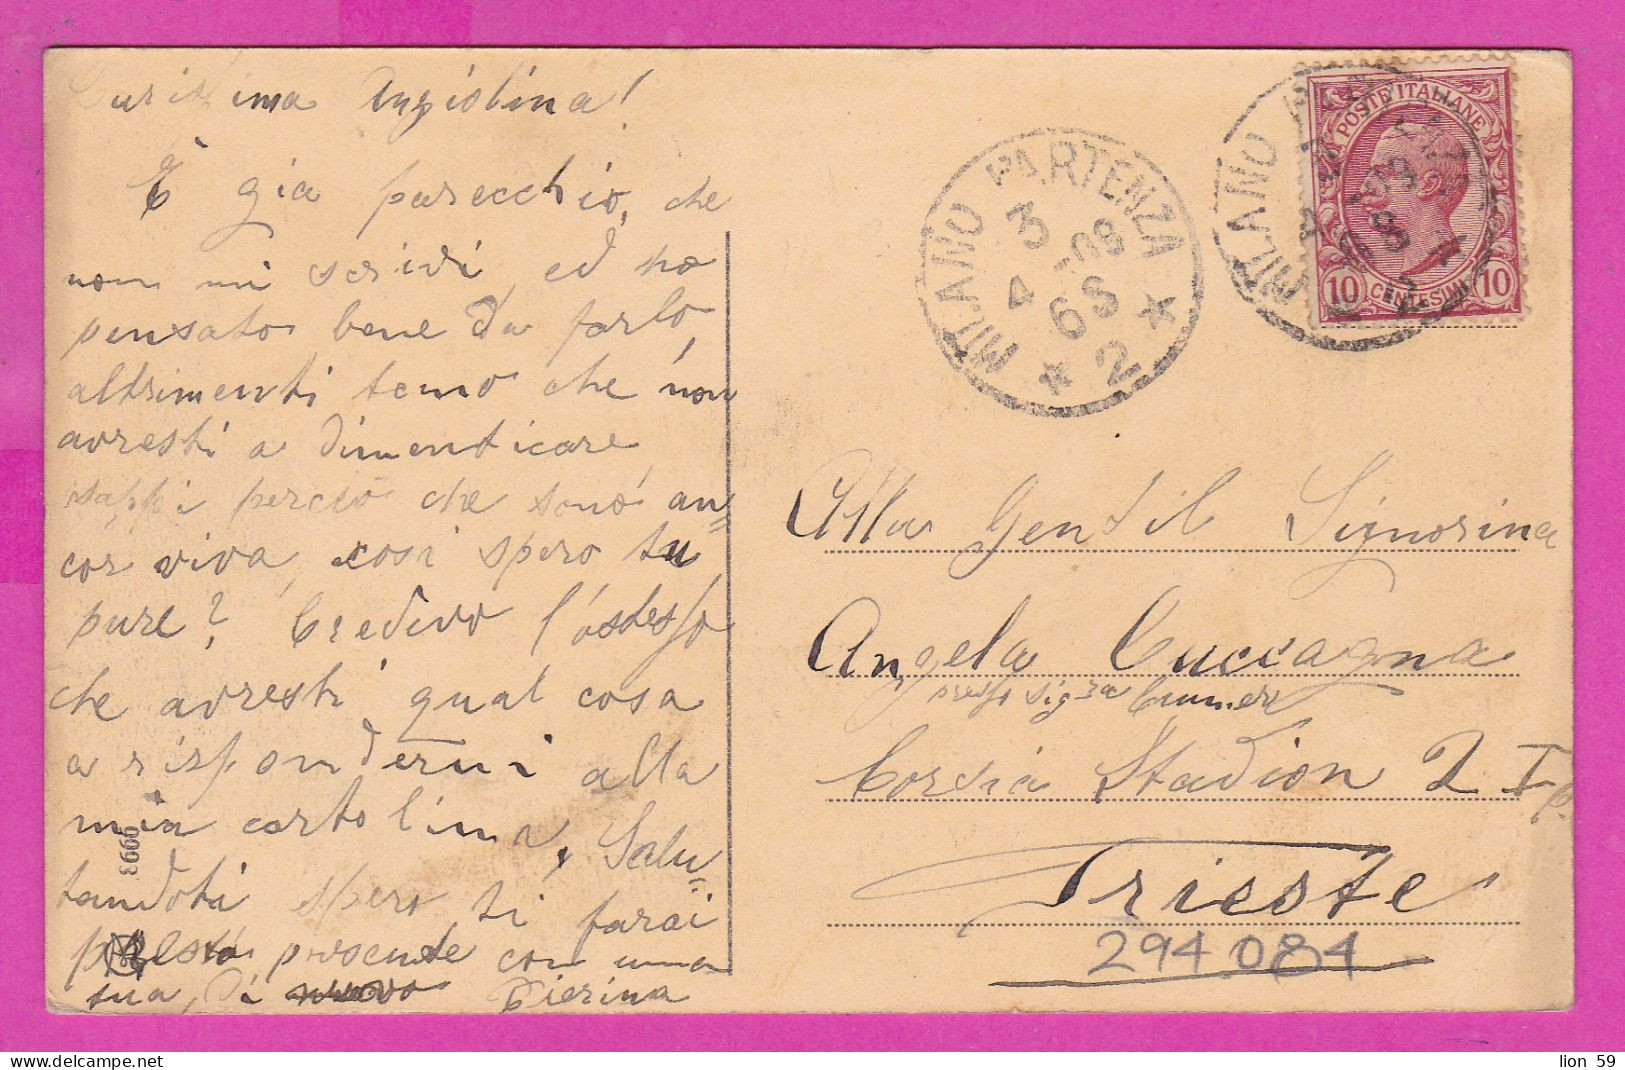 Carissima Angiolina!
È gia parecchio, che
non mi scrivi, ed ho
pensato bene da farlo,
altrimenti temo che non
avresti a dimenticare
sappi perciò che sono an=
cor viva, cosi spero tu
pure? Credevo l'ostesso
che avresti qual cosa
a rispondermi alla
mia cartolina, Salu=
tandoti spero ti farai
presto presente con una
tua, di nuovo Pierina
0993
MILANO PARTENZA
3
4 -08
6S
* 2 *
MILANO
POSTE ITALIANE
10 CENTESIMI 10
Alla Gentil Signorina
Angela Cuccagna
presso sig.ra
Corsia Stadion 2 I p.
Trieste
294084
lion 59